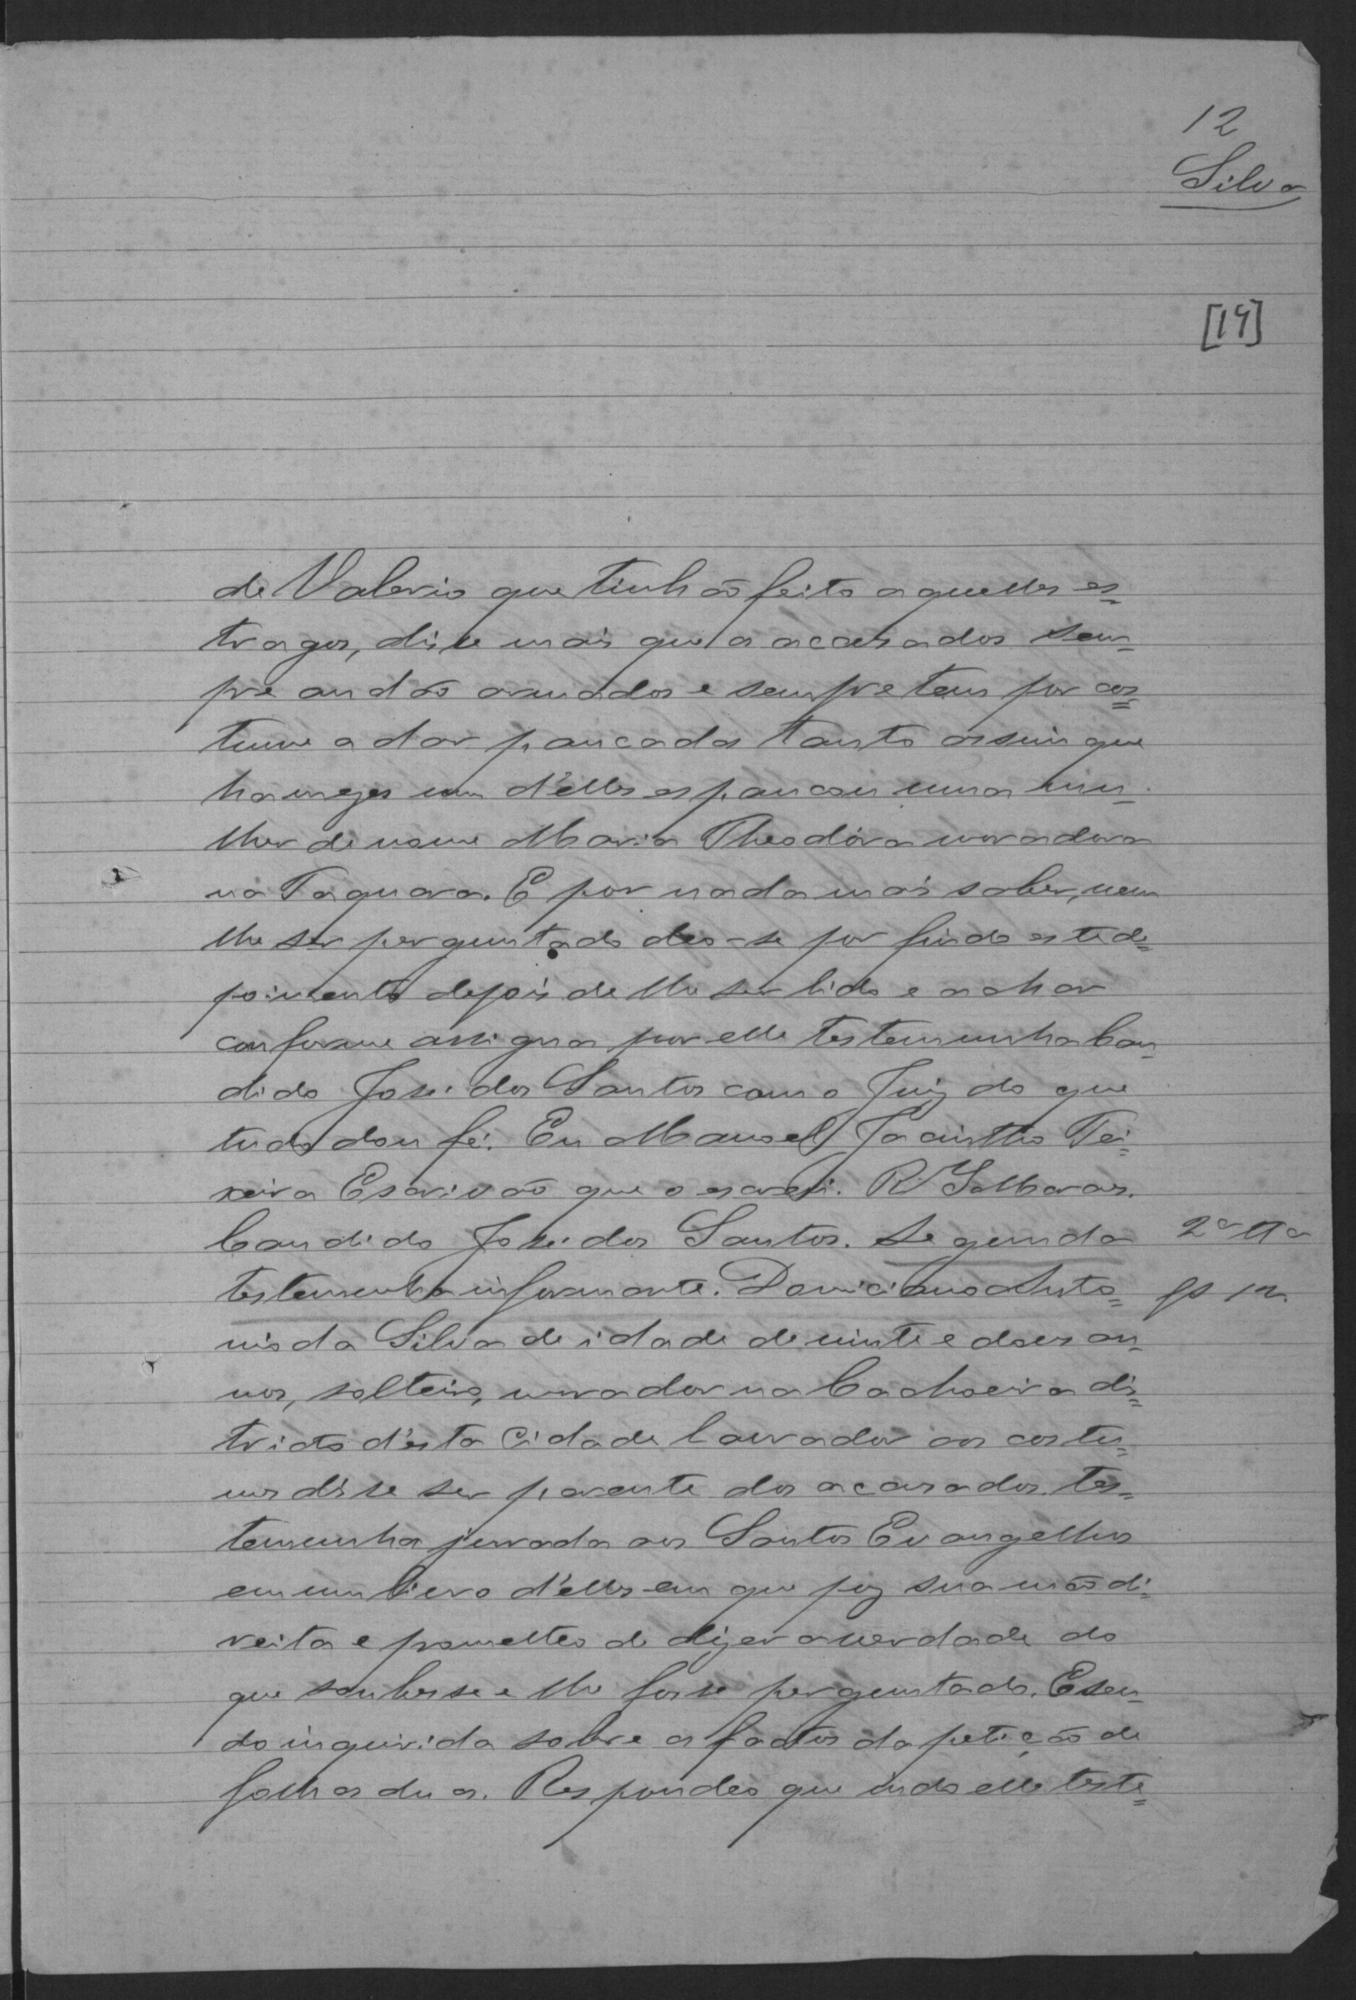 12
Silva
[14]
de Valerio que tinhão feito aquelles es=
tragos, dise mais que a acusados sem=
pre andão armados e sempre tem por cos=
tume a dar pancadas tanto assim que
ha mezes um d'elles espancou uma mu=
lher de nome Maria Theodóra moradora
na Taquara. E por nada mais saber, nem
lhe ser perguntado deo-se por findo este de=
poimento depois de lhe ser lido e achar
conforme assigna por elle testemunha Can=
dido José dos Santos com o Juiz do que
tudo dou fé. Eu Manoel Jacintho Tei=
xeira Escrivão que o escrevi. R
Candido José dos Santos. Segunda
2ª Tª
testemunha informante. Domiciano Anto=
fs 12
nio da Silva de idade de vinte e dois an=
nos, solteiro, morador na Cachoeira dis=
tricto d'esta Cidade lavrador aos costu=
mes dise ser parente dos acusados. tes=
temunha jurada aos Santos Evangelhos
em um livro d'elles em que poz sua mão di=
reita e prometteo de dizer a verdade do
que soubesse e lhe fosse perguntado. E sen=
do inquirida sobre os factos da petição de
folhas duas. Respondeo que indo elle teste=